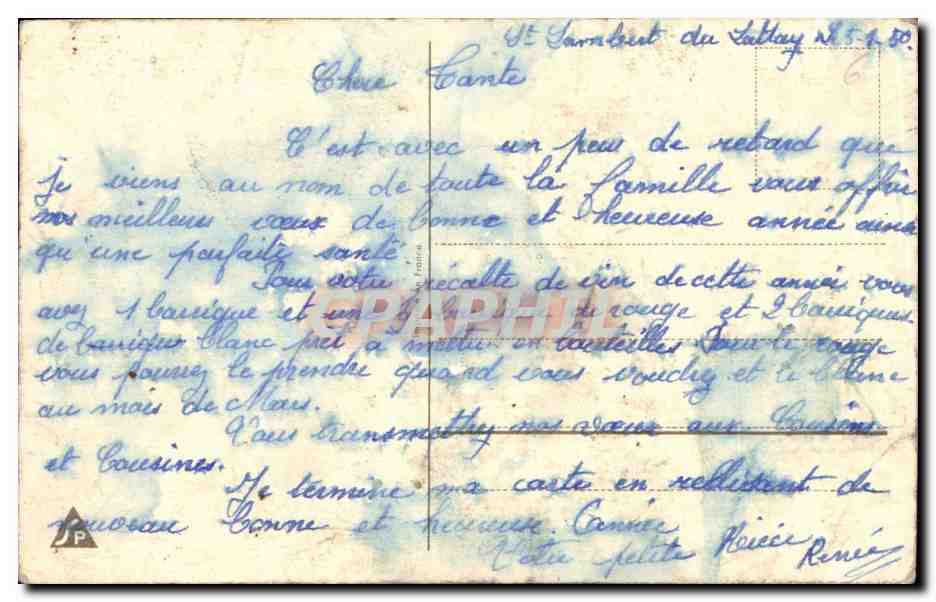 St Lambert du Lattay le 5-1-50.
6
Chère Tante
C'est avec un peu de retard que
je viens au nom de toute la famille vous offrir
nos meilleurs vœux de bonne et heureuse année ainsi
qu'une parfaite santé
Pour votre récolte de vin de cette année vous
avez 1 barrique et un de rouge et 2 barriques
de barrique blanc prêt à mettre en bouteilles Pour le rouge
vous pourrez le prendre quand vous voudrez et le blanc
au mois de Mars.
Vous transmettrez nos vœux aux Cousins
et Cousines.
Je termine ma carte en de
nouveau bonne et heureuse Année
Votre petite Nièce Renée
France
CPAPHIL
SP